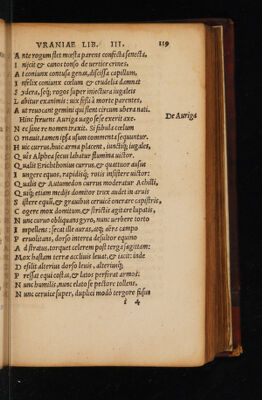 VRANIAE LIB. III. 119
Ante rogum stet mœsta parens confecta senecta,
Iniicit & canos tonso de vertice crines,
At coniunx contusa genas, discissa capillum,
Infelix coniunx cœlum & crudelia damnat
Sydera, seq; rogos super iniectura iugaleis
Labitur exanimis: uix fessi à morte parentes,
At reuocant gemini qui flent circum ubera nati.
Hinc feruens Auriga uago se se exerit axe. De Auriga
Nec sine re nomen traxit. Si fabula cœlum
Ornauit, tamen ipsa usum commenta sequuntur.
Huic currus, huic arma placent, iunctiq; iugales,
Quis Alphea secus labatur flumina uictor.
Qualis Erichthonius currus, & quattuor ausus
Iungere equos, rapidisq; rotis insistere uictor:
Qualis & Automedon currus moderatur Achilli,
Quisq; etiam medijs domitor trux audet in aruis
Sistere equũ, & grauibus ceruicē onerare capistris,
Cogere mox domitum, & strictis agitare lupatis,
Nunc curuo obliquans gyro, nunc uerbere torto
Impellens: secat ille auras, atq; aëre campo
Peruolitans, dorso interea desultor equino
Adstratus, torquet celerem post terga sagittam:
Mox hastam terræ accliuis leuat, & iacit: inde
Desilit alterius dorso leuis, alteriusq;
Pressat equi costas, & latos perfirat armos:
Nunc humilis, nunc elato se pectore tollens,
Nunc ceruice super, duplici modò tergore fusus
i 4